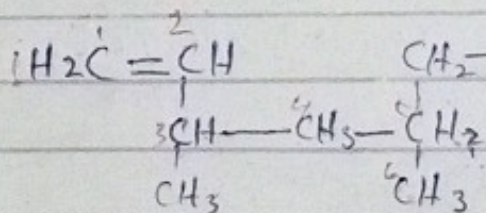 1H2C=CH 2 CH2-
3CH—4CH3—5CH2
CH3 6CH3